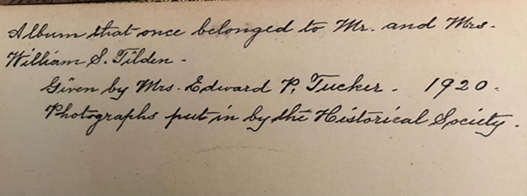 Album that once belonged to Mr. and Mrs.
William S. Tilden.
Given by Mrs. Edward P. Tucker. 1920.
Photographs put in by the Historical Society.